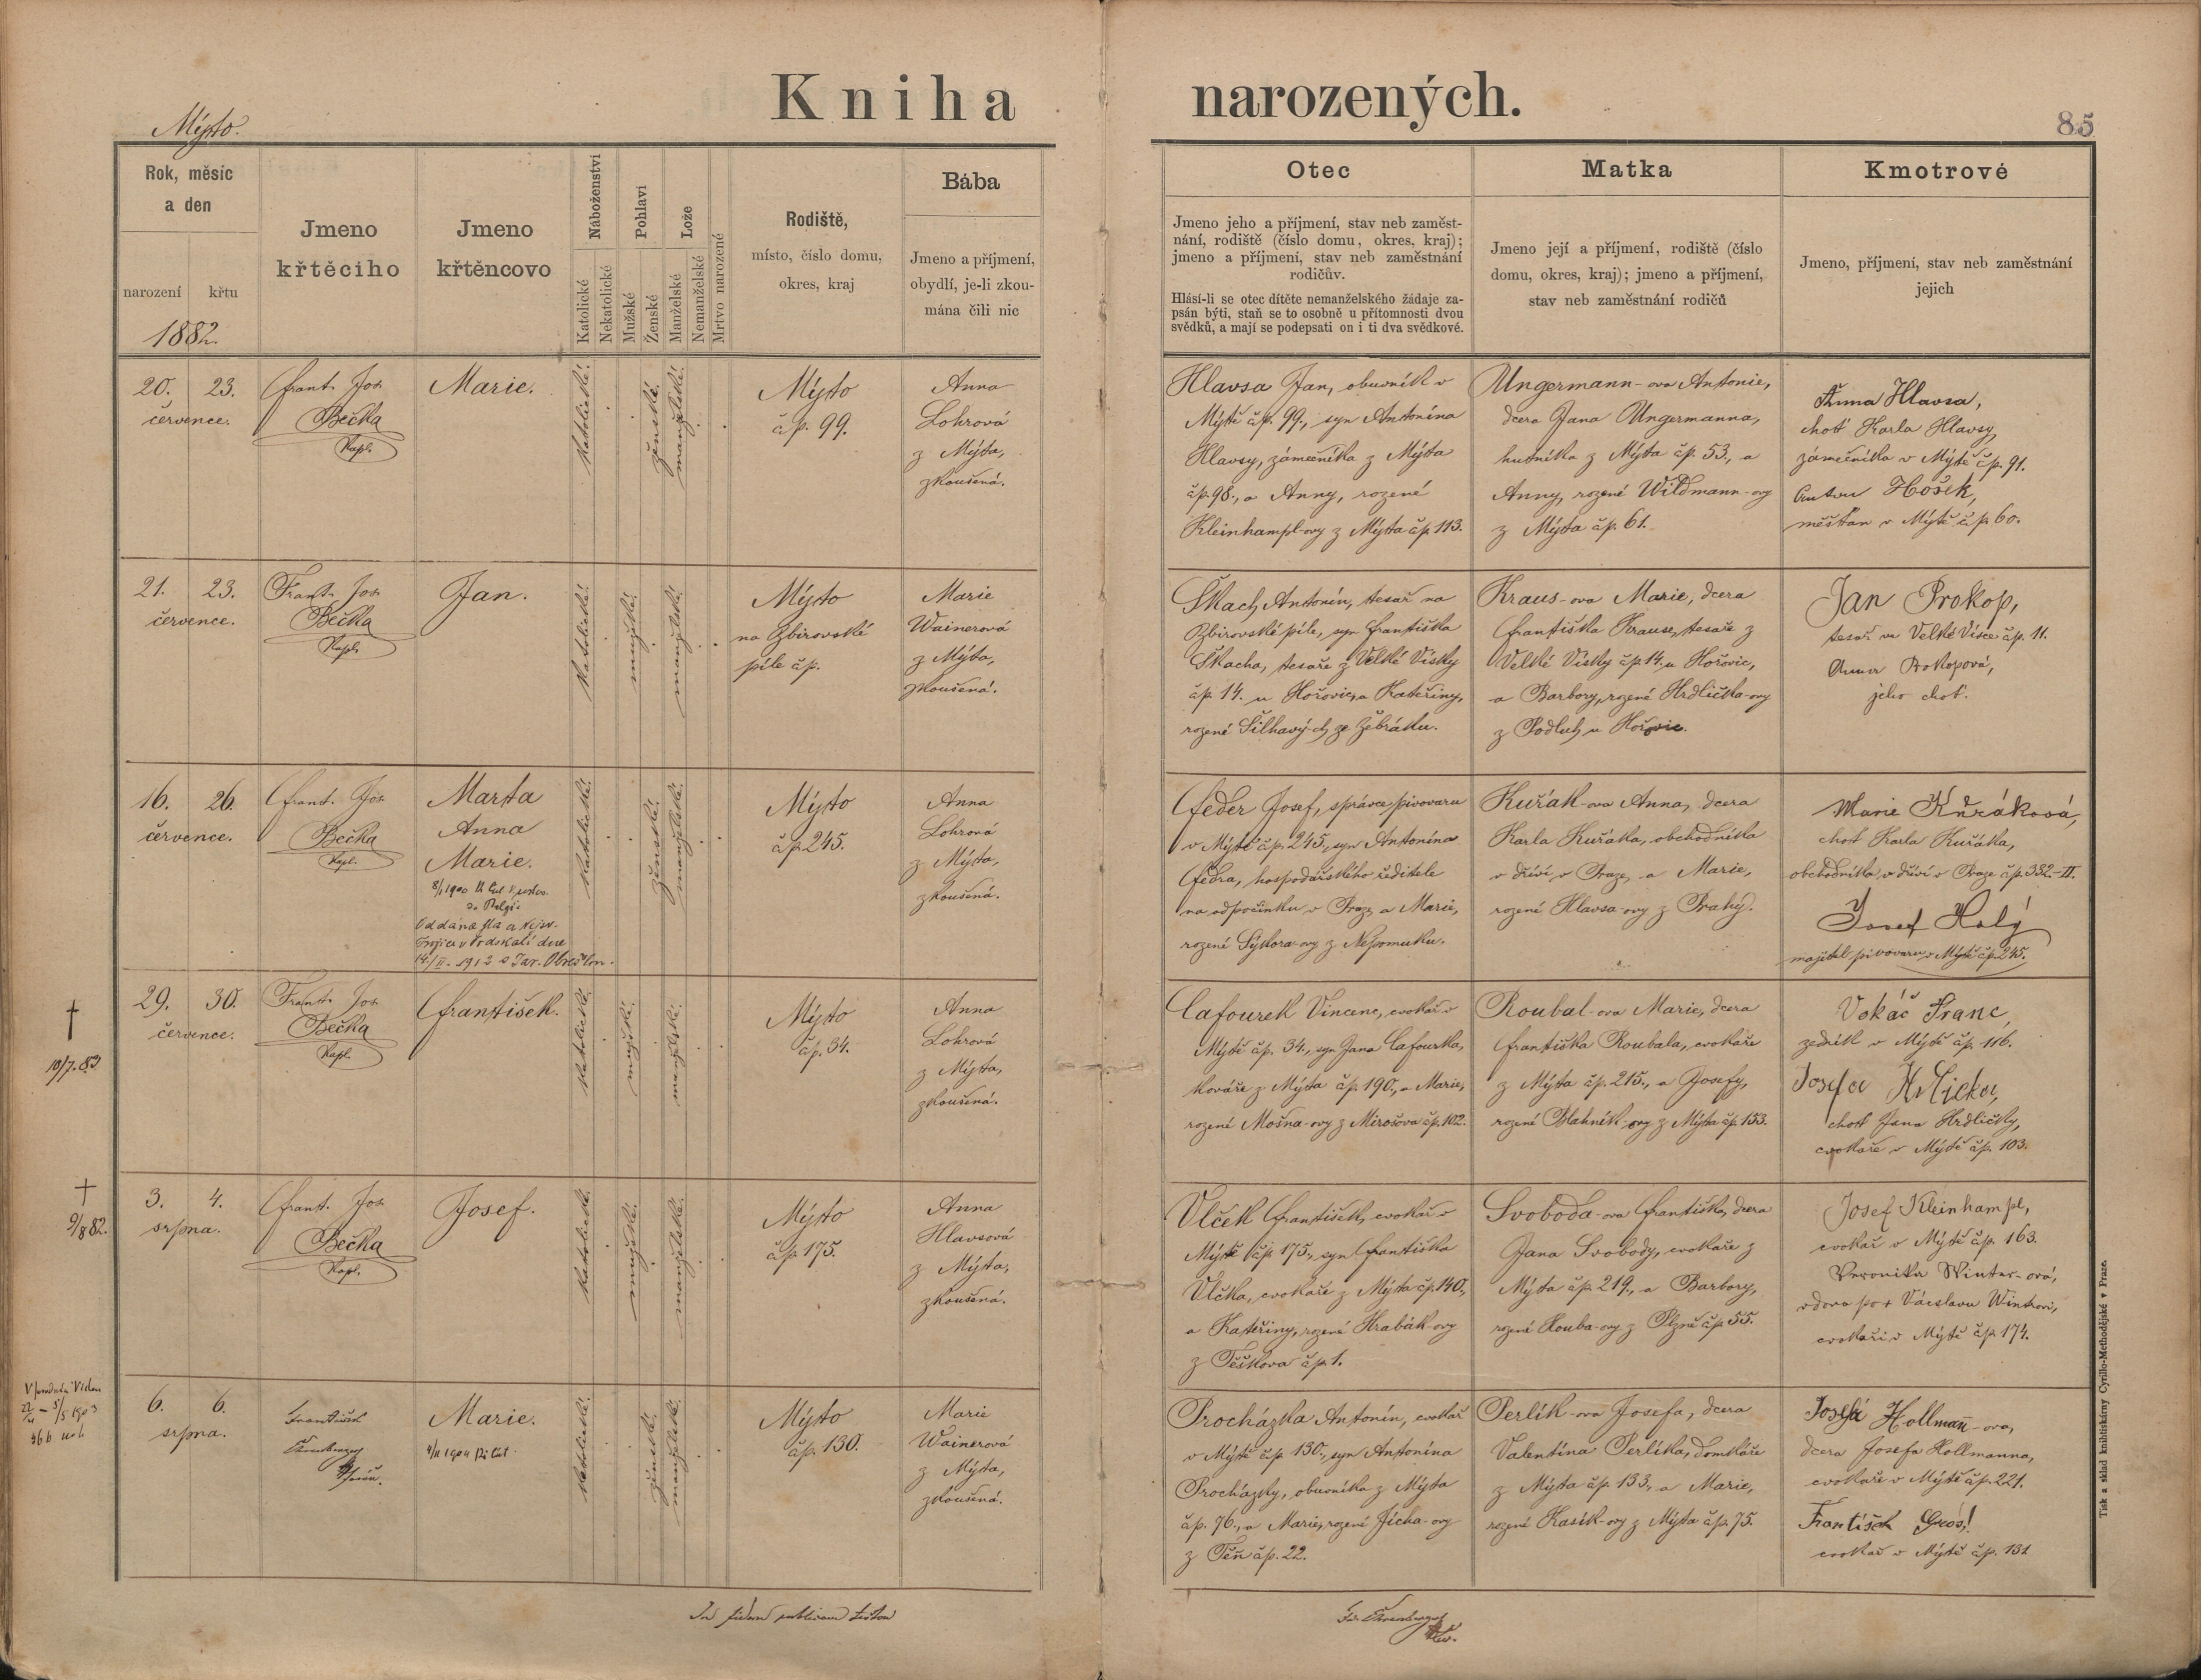 Kniha narozených.
Mýto.
85
Rok, měsíc
a den
narození
křtu
1882.
Jmeno
křtěcího
Jmeno
křtěncovo
Náboženství
Katolické
Nekatolické
Pohlaví
Mužské
Ženské
Lože
Manželské
Nemanželské
Mrtvo narozené
Rodiště,
místo, číslo domu,
okres, kraj
Bába
Jmeno a příjmení,
obydlí, je-li zkou-
mána čili nic
Otec
Jmeno jeho a příjmení, stav neb zaměst-
nání, rodiště (číslo domu, okres, kraj);
jmeno a příjmení, stav neb zaměstnání
rodičův.
Hlásí-li se otec dítěte nemanželského žádaje za-
psán býti, staň se to osobně u přítomnosti dvou
svědků, a mají se podepsati on i ti dva svědkové.
Matka
Jmeno její a příjmení, rodiště (číslo
domu, okres, kraj); jmeno a příjmení,
stav neb zaměstnání rodičů
Kmotrové
Jmeno, příjmení, stav neb zaměstnání
jejich
20. 23.
července.
Frant. Jos.
Bečka
Kapl.
Marie.
katolické.
ženské.
manželské.
Mýto
čp. 99.
Anna
Lohrová
z Mýta,
zkoušená.
Hlavsa Jan, obuvník v
Mýtě čp. 99., syn Antonína
Hlavsy, zámečníka z Mýta
čp. 98., a Anny, rozené
Kleinhampl-ovy z Mýta čp. 113.
Ungermann-ova Antonie,
dcera Jana Ungermanna,
hutníka z Mýta čp. 53., a
Anny, rozené Wildmann-ovy
z Mýta čp. 61.
Anna Hlavsa,
choť Karla Hlavsy,
zámečníka v Mýtě čp. 91.
Anton Hošek,
měšťan v Mýtě čp. 60.
21. 23.
července.
Frant. Jos.
Bečka
Kapl.
Jan.
katolické.
mužské.
manželské.
Mýto
na Zbirovské
pile čp.
Marie
Wainerová
z Mýta,
zkoušená.
Škach Antonín, tesař na
Zbirovské pile, syn Františka
Škacha, tesaře z Velké Vísky
čp. 14. u Hořovic, a Kateřiny,
rozené Šilhavých ze Žebráku.
Kraus-ova Marie, dcera
Františka Krause, tesaře z
Velké Vísky čp. 14. u Hořovic,
a Barbory, rozené Hrdlička-ovy
z Podluh u Hořovic.
Jan Prokop,
tesař ve Velké Vísce čp. 11.
Anna Prokopová,
jeho choť.
16. 26.
července.
Frant. Jos.
Bečka
Kapl.
Marta
Anna
Marie.
14/II. 1912 s Jar.
katolické.
ženské.
manželské.
Mýto
čp. 245.
Anna
Lohrová
z Mýta,
zkoušená.
Feder Josef, správce pivovaru
v Mýtě čp. 245., syn Antonína
Fedra, hospodářského ředitele
na odpočinku v Praze, a Marie,
rozené Sýkora-ovy z Nepomuku.
Kuřák-ova Anna, dcera
Karla Kuřáka, obchodníka
v dříví v Praze, a Marie,
rozené Hlavsa-ovy z Prahy.
Marie Kuřáková,
choť Karla Kuřáka,
obchodníka v dříví v Praze čp. 332.-II.
Josef Holý
majitel pivovaru v Mýtě čp. 245.
†
18/7. 83
29. 30.
července.
Frant. Jos.
Bečka
Kapl.
František.
katolické.
mužské.
manželské.
Mýto
čp. 34.
Anna
Lohrová
z Mýta,
zkoušená.
Cafourek Vincenc, cvokař v
Mýtě čp. 34., syn Jana Cafourka,
kováře z Mýta čp. 190., a Marie,
rozené Mošna-ovy z Mirošova čp. 102.
Roubal-ova Marie, dcera
Františka Roubala, cvokaře
z Mýta čp. 215., a Josefy,
rozené Blahník-ovy z Mýta čp. 153.
Vokáč Franc,
zedník v Mýtě čp. 116.
Josefa
choť Jana Hrdličky,
cvokaře v Mýtě čp. 103.
†
9/8 82.
3. 4.
srpna.
Frant. Jos.
Bečka
Kapl.
Josef.
katolické.
mužské.
manželské.
Mýto
čp. 175.
Anna
Hlavsová
z Mýta,
zkoušená.
Vlček František, cvokař v
Mýtě čp. 175., syn Františka
Vlčka, cvokaře z Mýta čp. 140.,
a Kateřiny, rozené Hrabák-ovy
z Těškova čp. 1.
Svoboda-ova Františka, dcera
Jana Svobody, cvokaře z
Mýta čp. 219., a Barbory,
rozené Kouba-ovy z Plzně čp. 55.
Josef Kleinhampl,
cvokař v Mýtě čp. 163.
Veronika Winter-ová,
vdova po † Václavu Wintrovi,
cvokaři v Mýtě čp. 174.
6. 6.
srpna.
František
Marie.
katolické.
ženské.
manželské.
Mýto
čp. 130.
Marie
Wainerová
z Mýta,
zkoušená.
Procházka Antonín, cvokař
v Mýtě čp. 130., syn Antonína
Procházky, obuvníka z Mýta
čp. 76., a Marie, rozené Jícha-ovy
z Těň čp. 22.
Perlík-ova Josefa, dcera
Valentina Perlíka, domkáře
z Mýta čp. 133., a Marie,
rozené Kasík-ovy z Mýta čp. 75.
Josefa Hollmann-ova,
dcera Josefa Hollmanna,
cvokaře v Mýtě čp. 221.
František Gros,
cvokař v Mýtě čp. 131
In fidem publicam
Tisk a sklad knihtiskárny Cyrillo-Methodějské v Praze.